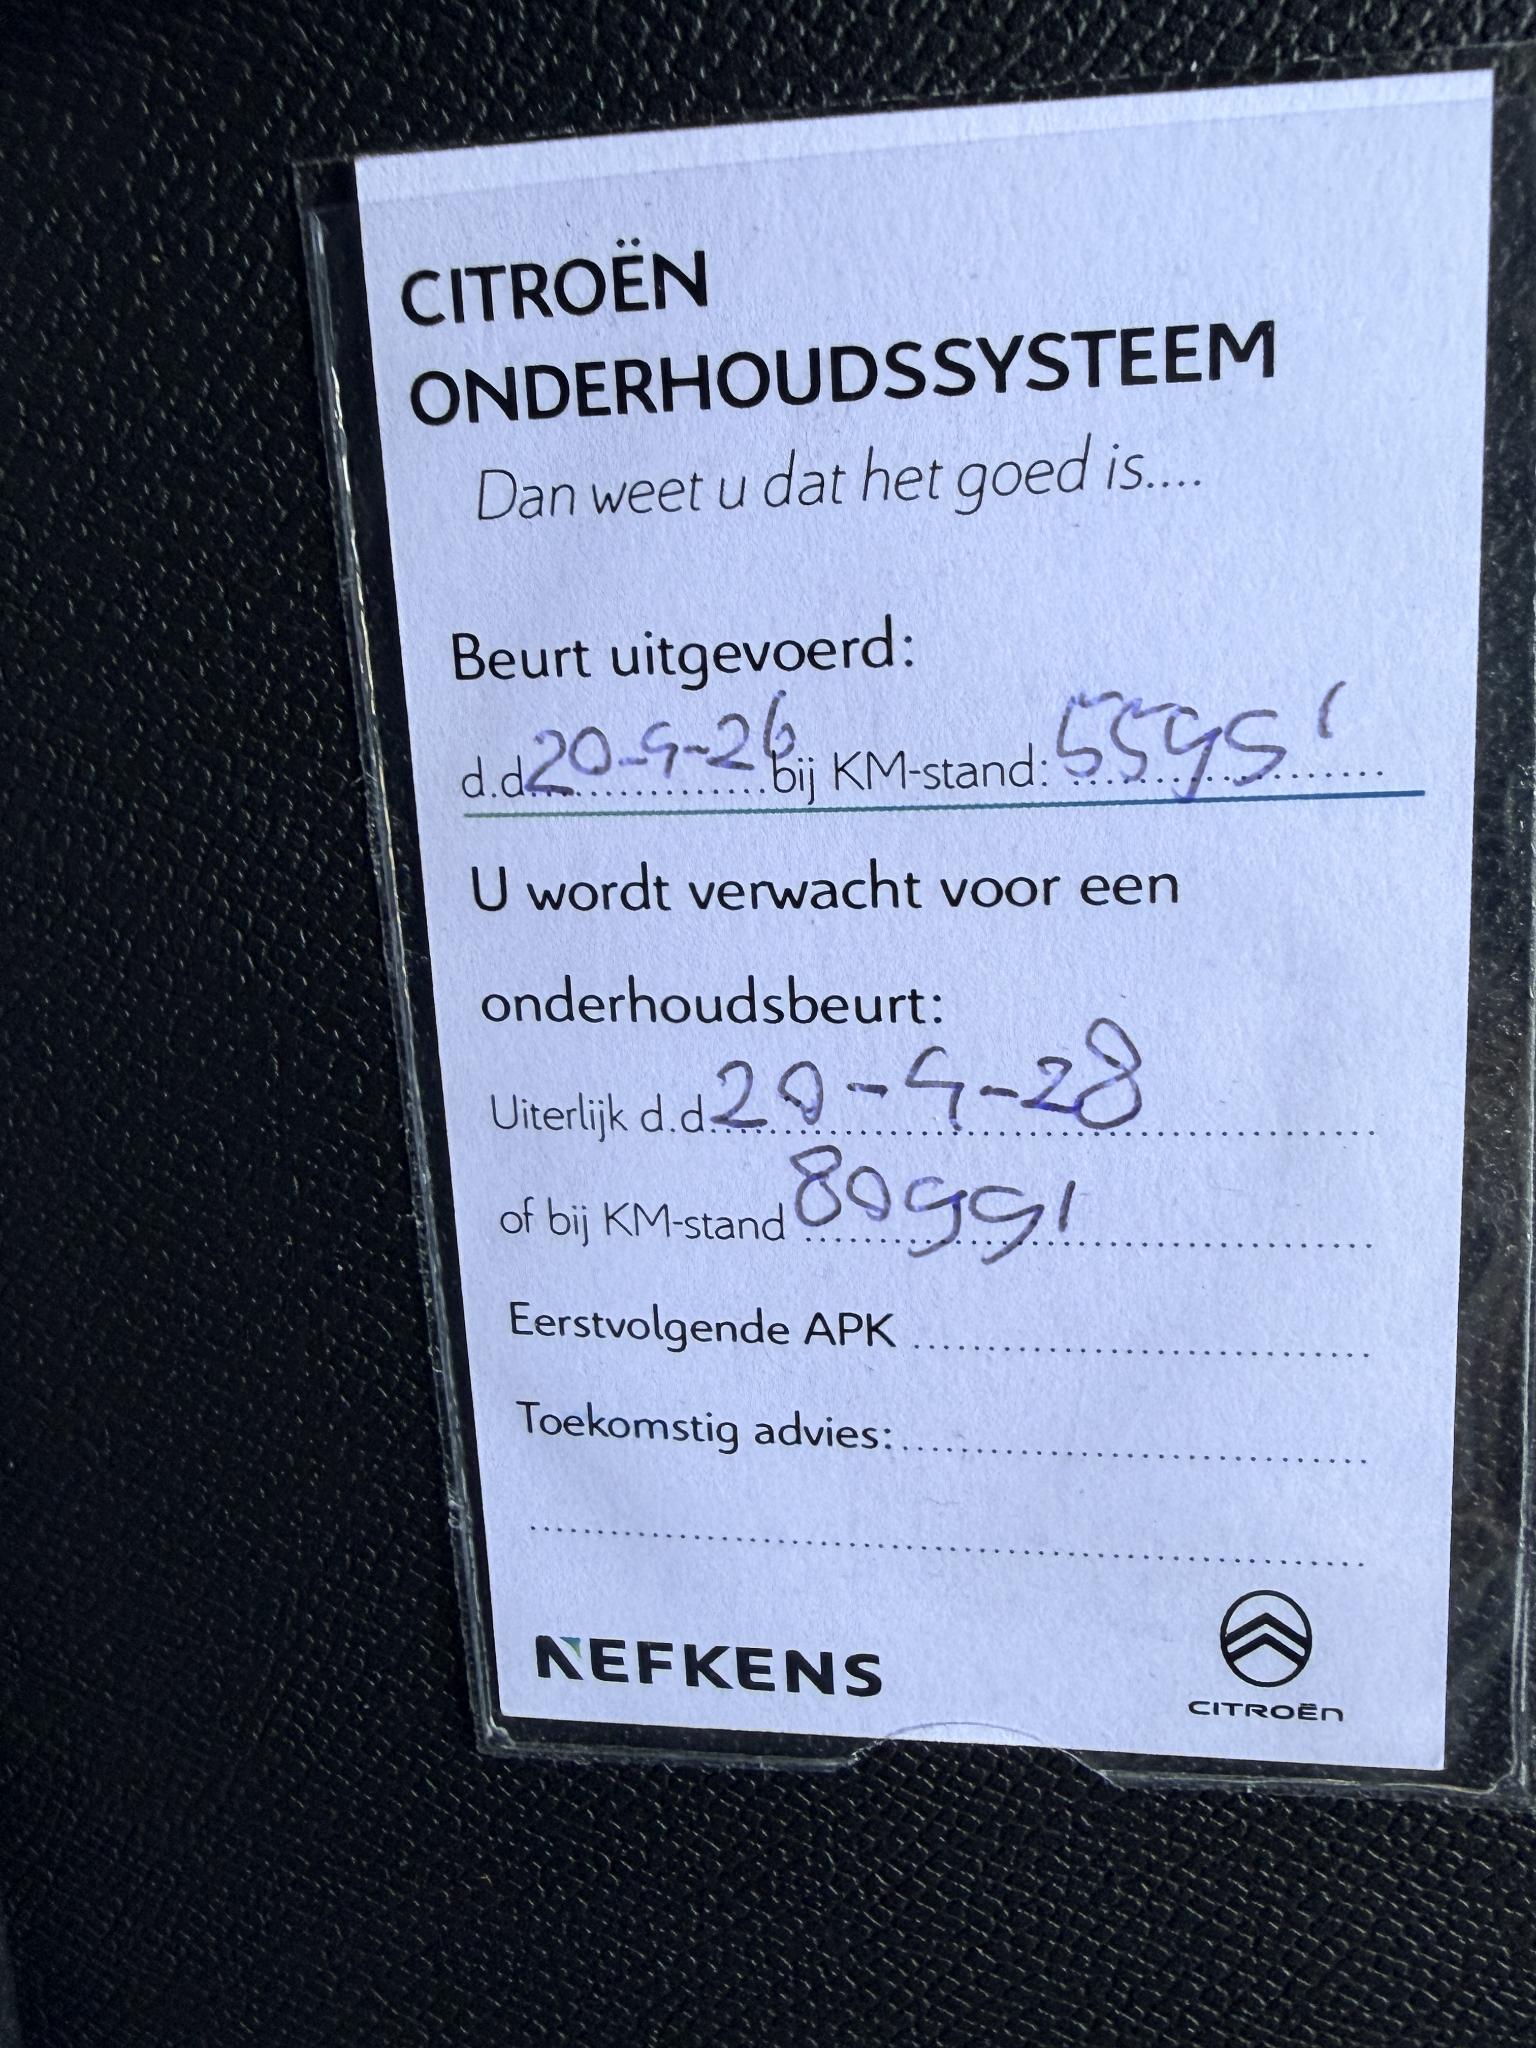 CITROËN
ONDERHOUDSSYSTEEM
Dan weet u dat het goed is....
Beurt uitgevoerd:
d.d. 20-4-26 bij KM-stand: 55991
U wordt verwacht voor een
onderhoudsbeurt:
Uiterlijk d.d. 20-4-28
of bij KM-stand 80991
Eerstvolgende APK
Toekomstig advies:
NEFKENS
CITROËN